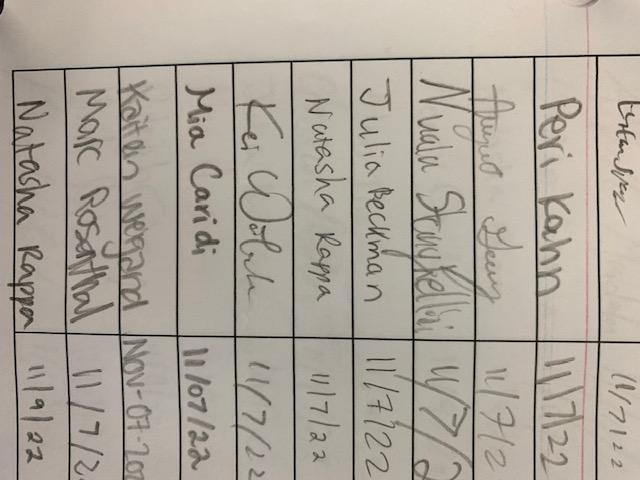 11/7/22
Peri Kahn 11/7/22
11/7/2
Nuala 11/7/2
Julia Beckman 11/7/22
Natasha Rappa 11/7/22
Kei 11/7/22
Mia Caridi 11/07/22
Kaitlan Weigand Nov-07-202
Marc Rosenthal 11/7/2
Natasha Rappa 11/9/22